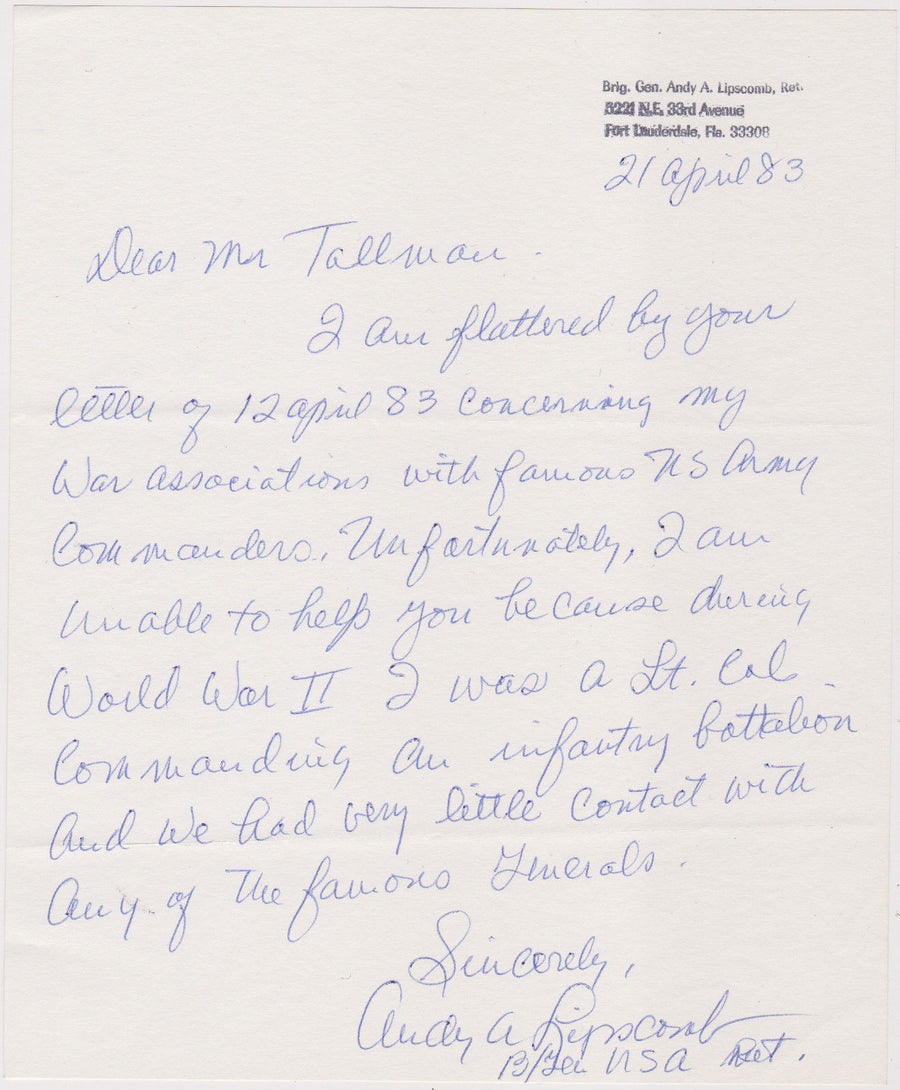 Brig. Gen. Andy A. Lipscomb, Ret.
5221 N.E. 33rd Avenue
Fort Lauderdale, Fla. 33308
21 April 83
Dear Mr Tallman.
I am flattered by your
letter of 12 April 83 concerning my
War associations with famous US Army
Commanders. Unfortunately, I am
Unable to help you because during
World War II I was a Lt. Col.
Commanding an infantry battalion
And we had very little contact with
Any of the famous Generals.
Sincerely,
Andy A Lipscomb
B/Gen USA Ret.